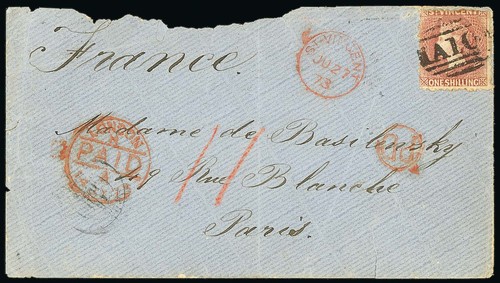 ST VINCENT
A10
ONE SHILLING
France.
ST VINCENT
JU 27
73
LONDON
PAID
Madame de Basilewsky
49 Rue Blanche
Paris.